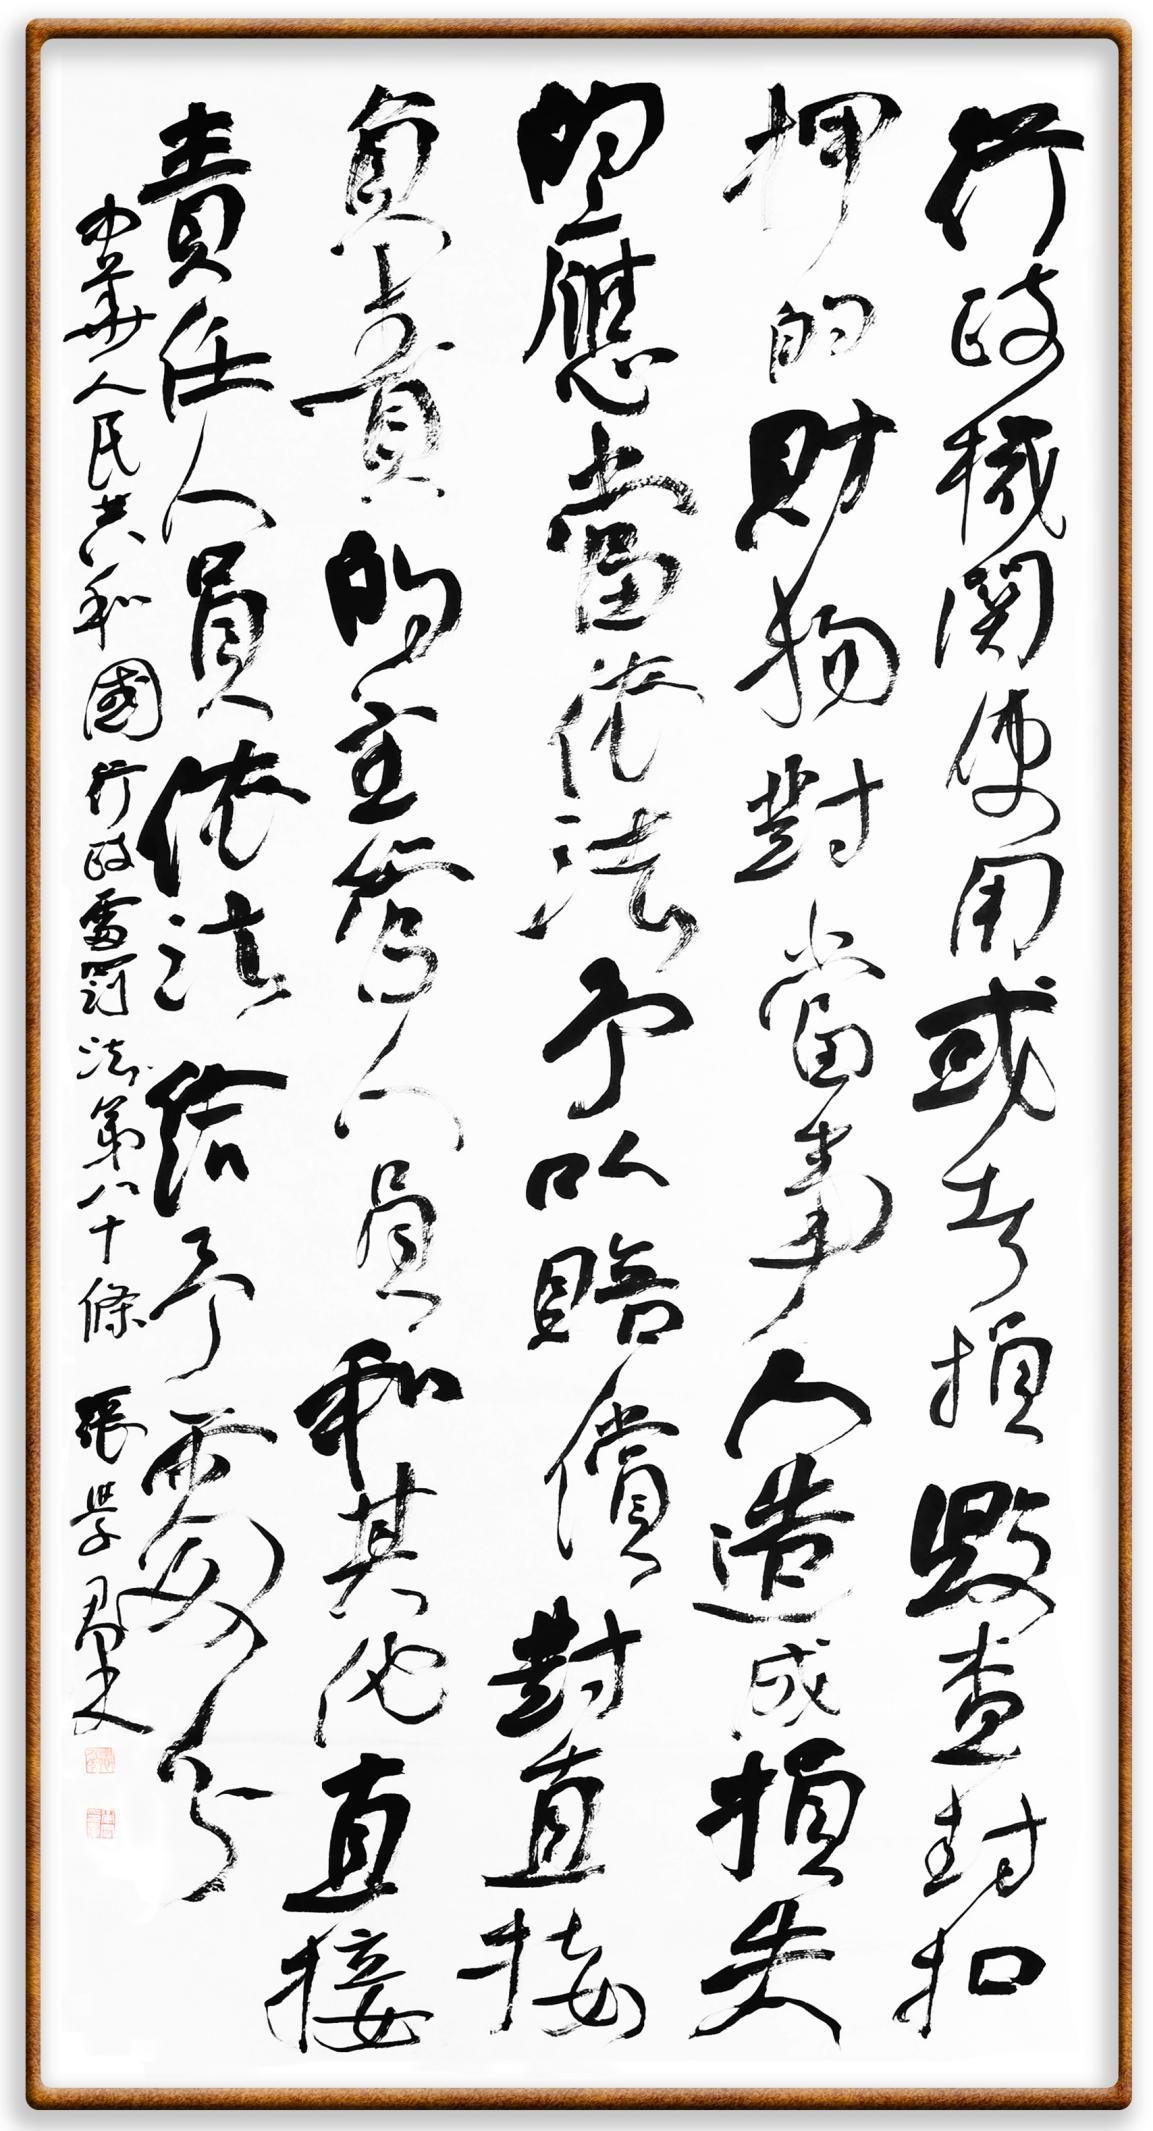 行政機関使用或者損毀查封扣
押的財物對當事人造成損失
的應當依法予以賠償對直接
負責的主管人員和其他直接
責任人員依法給予處分
中華人民共和國行政處罰法第八十條 張學群書